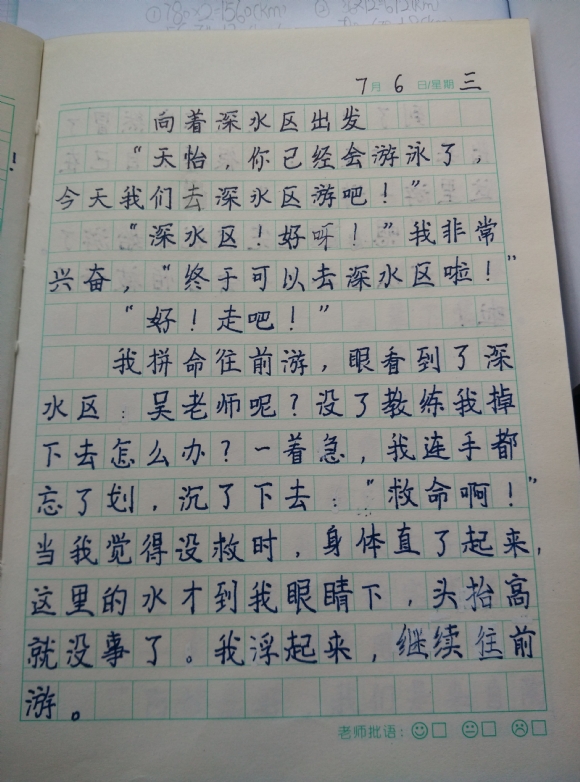 7月6日/星期三
向着深水区出发
“天怡，你已经会游泳了，
今天我们去深水区游吧！”
“深水区！好呀！”我非常
兴奋，“终于可以去深水区啦！”
“好！走吧！”
我拼命往前游，眼看到了深
水区：吴老师呢？没了教练我掉
下去怎么办？一着急，我连手都
忘了划，沉了下去：“救命啊！”
当我觉得没救时，身体直了起来，
这里的水才到我眼睛下，头抬高
就没事了。我浮起来，继续往前
游。
老师批语：